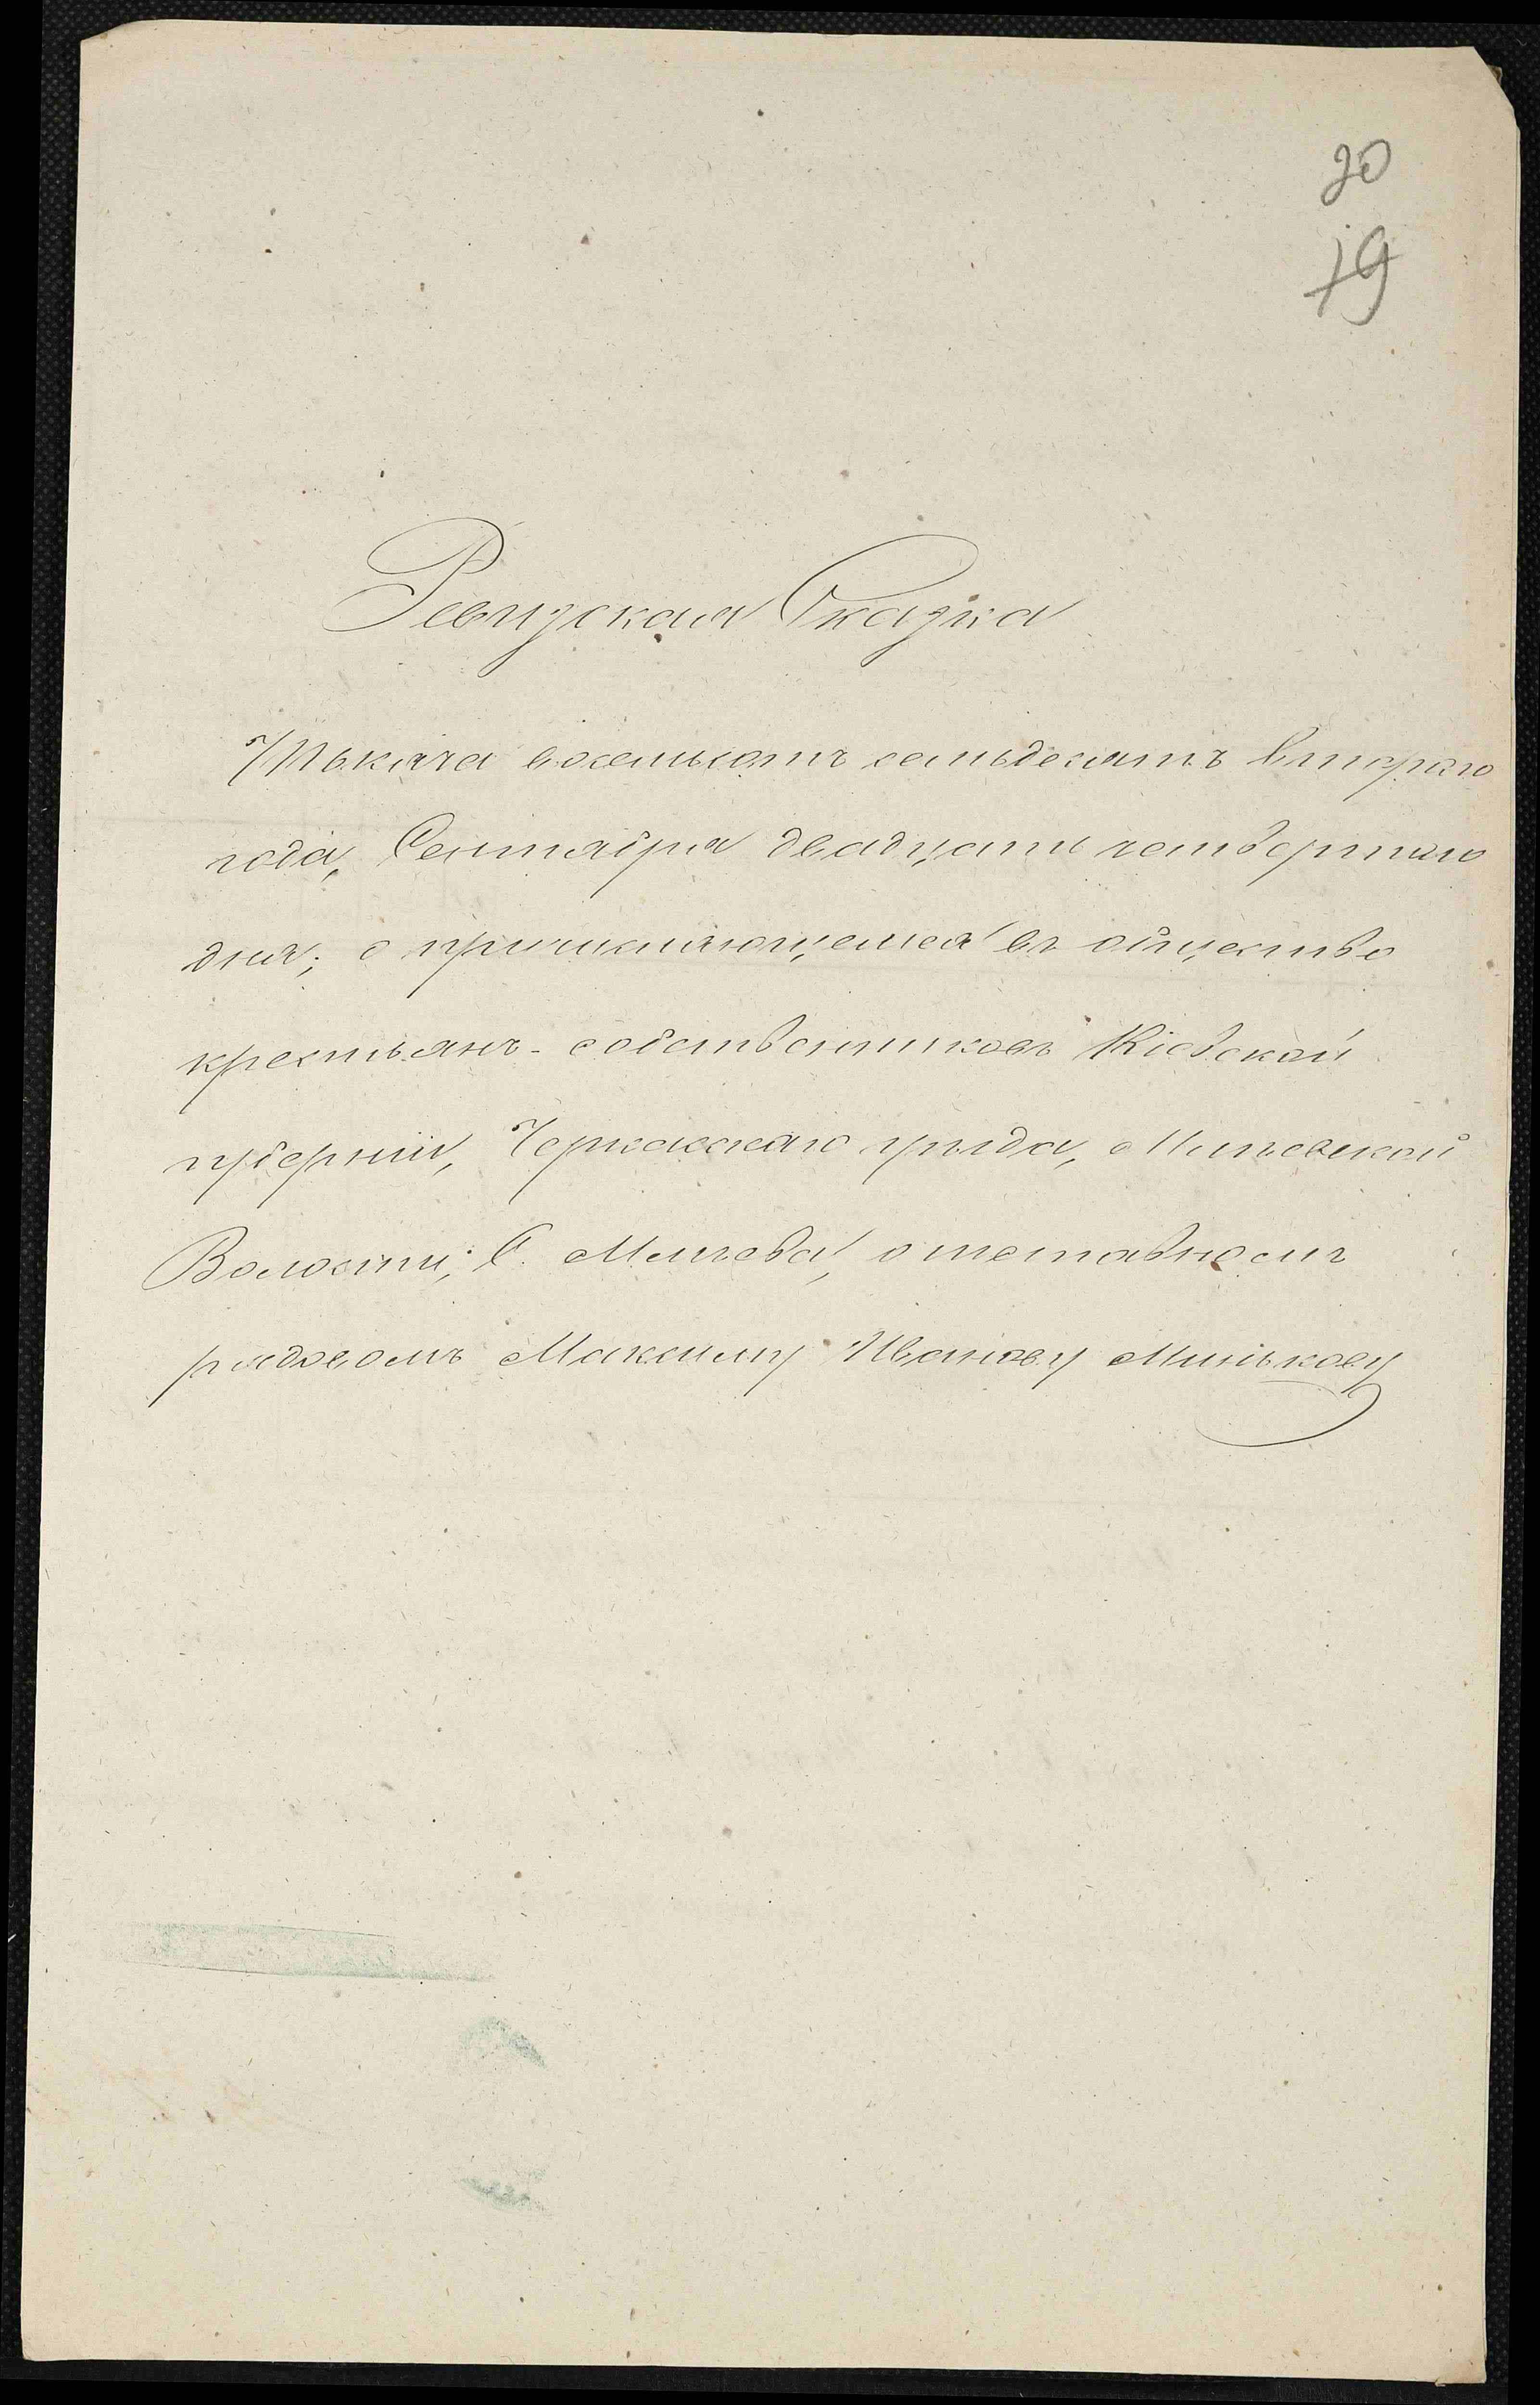 20
19
Ревизская Сказка
Тысяча восемьсотъ семьдесятъ втораго
года, Сентября двадцать четвертаго
дня; о причисляющемся въ общество
крестьянъ-собственниковъ Кіевской
губерніи, Черкасскаго уѣзда, Мліевской
Волости, С. Мліева, отставномъ
рядовомъ Максиму Иванову Минькову